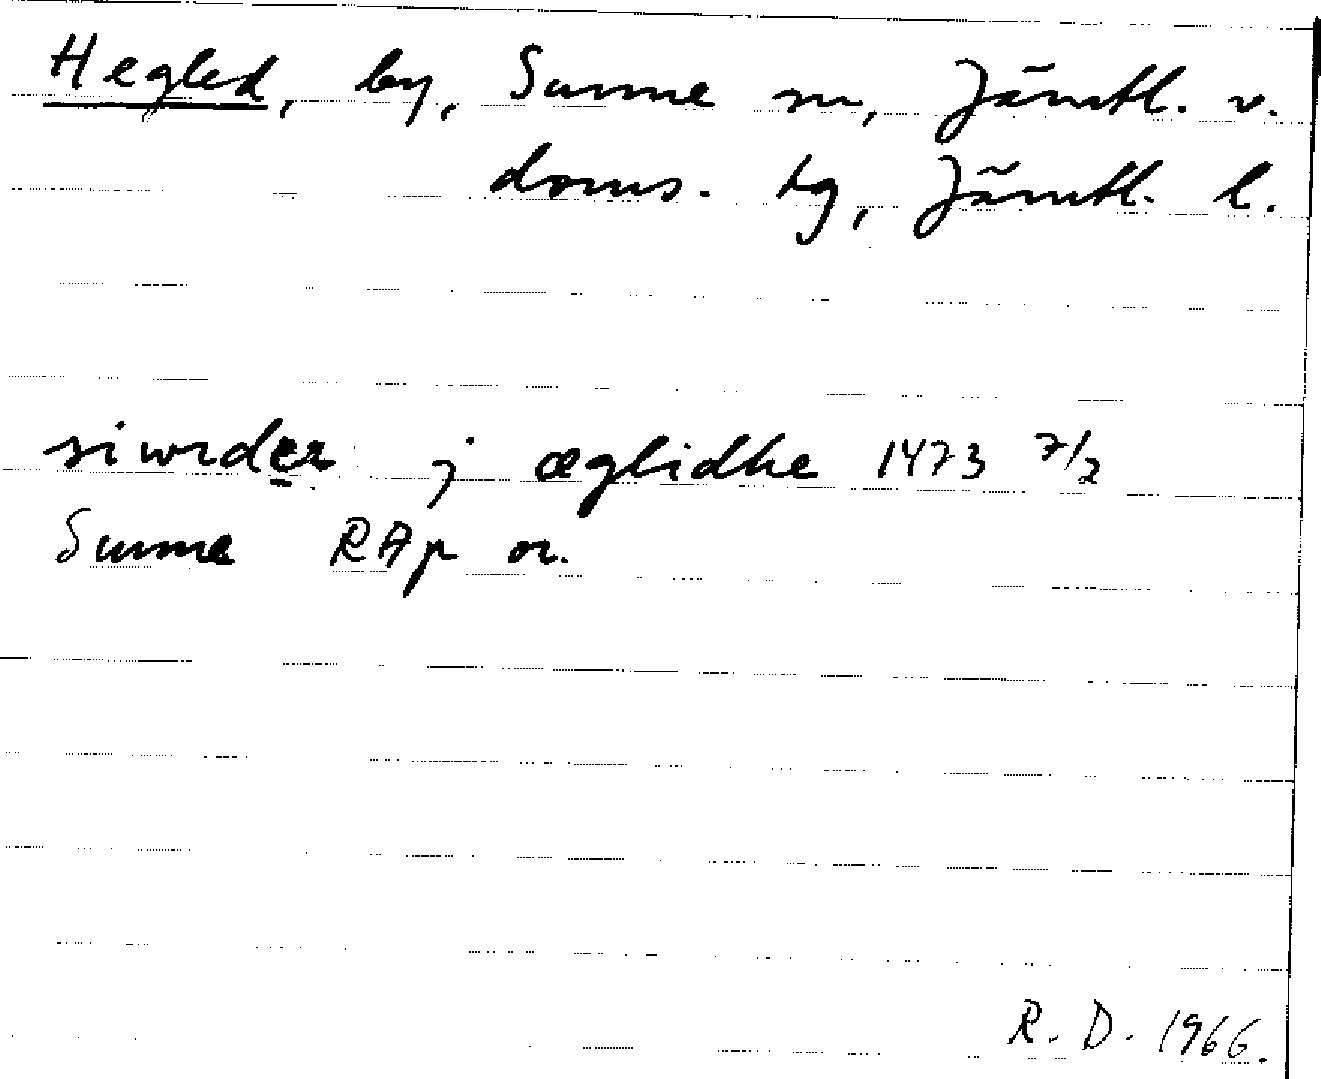 Hegled, by, Sunne sn, Jämtl. v.
doms. tg, Jämtl. l.
siwrder j æglidhe 1473 7/2
Sunne RAp or.
R. D. 1966.